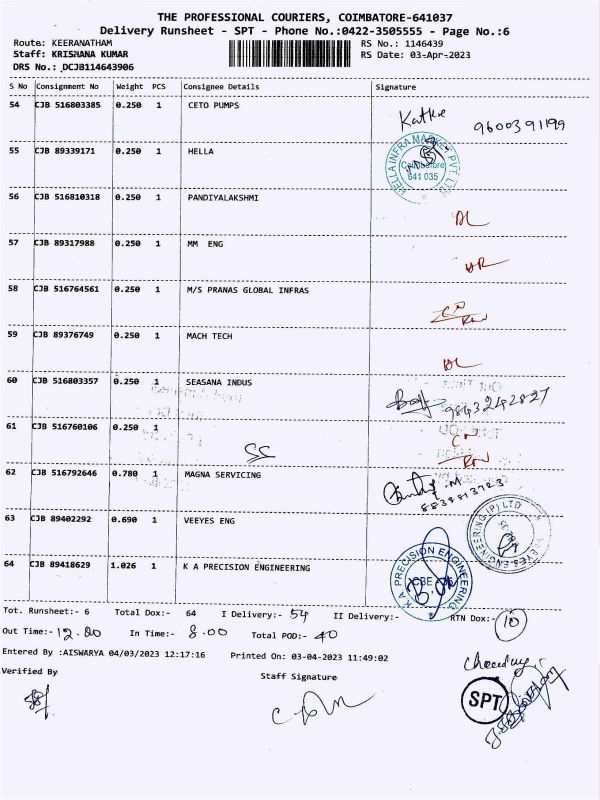 THE PROFESSIONAL COURIERS, COIMBATORE-641037
Delivery Runsheet - SPT - Phone No.:0422-3505555 - Page No.:6
Route: KEERANATHAM RS No.: 1146439
Staff: KRISHANA KUMAR RS Date: 03-Apr-2023
DRS No.: DCJB114643906
S No Consignment No Weight PCS Consignee Details Signature
54 CJB 516803385 0.250 1 CETO PUMPS 9600391199
55 CJB 89339171 0.250 1 HELLA
HELLA INFRA MARKET PVT. LTD Coimbatore 641 035
56 CJB 516810318 0.250 1 PANDIYALAKSHMI DL
57 CJB 89317988 0.250 1 MM ENG
58 CJB 516764561 0.250 1 M/S PRANAS GLOBAL INFRAS
59 CJB 89376749 0.250 1 MACH TECH DL
60 CJB 516803357 0.250 1 SEASANA INDUS 9843242827
61 CJB 516760106 0.250 1
62 CJB 516792646 0.780 1 MAGNA SERVICING
63 CJB 89402292 0.690 1 VEEYES ENG
VEEYES ENGINEERING (P) LTD
64 CJB 89418629 1.026 1 K A PRECISION ENGINEERING
K A PRECISION ENGINEERING CBE
Tot. Runsheet:- 6 Total Dox:- 64 I Delivery:- 54 II Delivery:- RTN Dox:- 10
Out Time:- 12.00 In Time:- 8.00 Total POD:- 40
Entered By :AISWARYA 04/03/2023 12:17:16 Printed On: 03-04-2023 11:49:02
Verified By Staff Signature
SPT